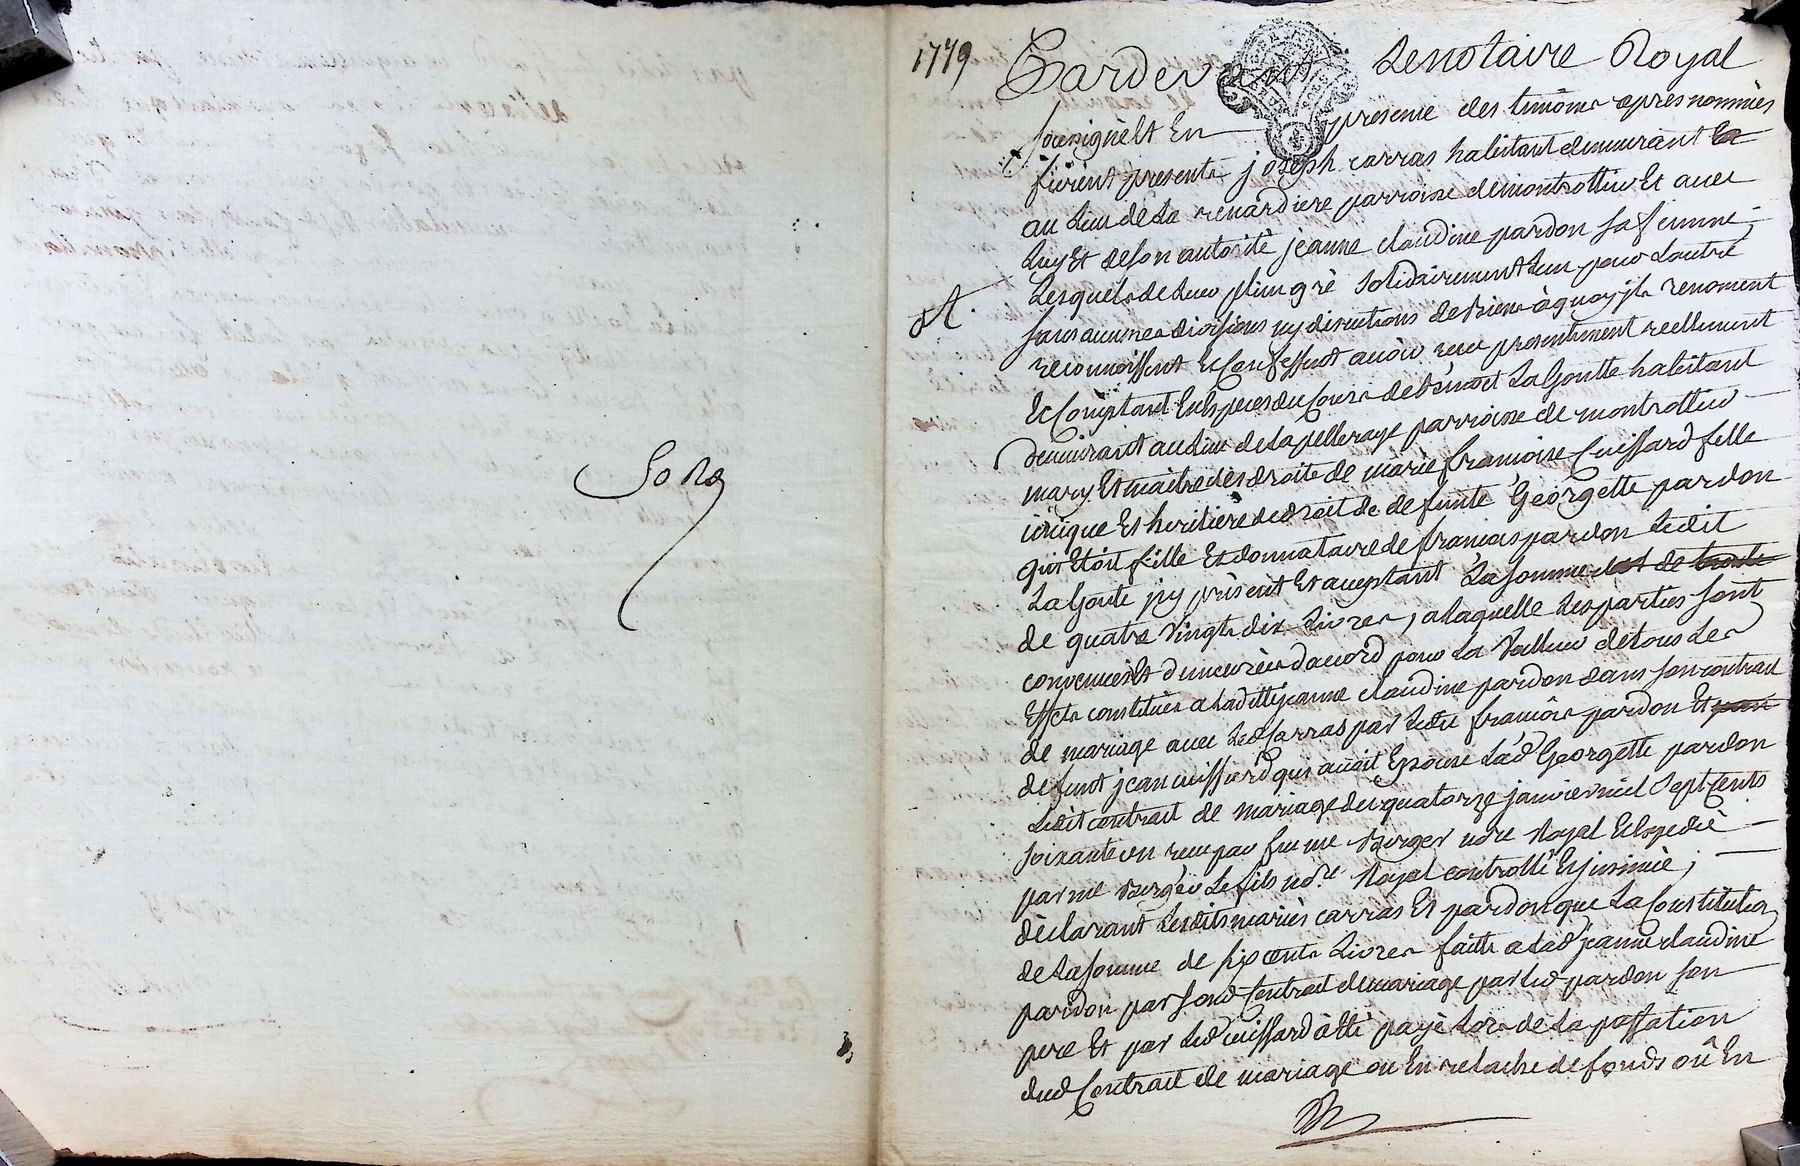 1779
Pardevant Le notaire Royal
soussigné Et En presence des temoins apres nommés
fùrent presents joseph carras habitant demeurant
au Lieu de La renardiere parroisse de montrottier Et avec
Luy Et de son autorité jeanne claudine pardon sa femme,
Lesquels de Leur plein gré solidairement Lun pour Lautre
sans aucunes divisions ny discutions de biens à quoy jls renoncent
reconnoissent Et Confessent avoir recu presentement reellement
Et Comptant En Especes du Cours de benoit La Goutte habitant
demeurant au Lieu de La pelleraye parroisse de montrottier
mary Et maitre des droits de marie francoise Cuissard fille
unique Et heritiere de droit de defunte Georgette pardon
qui Etoit fille Et donnataire de francois pardon Ledit
La Goute jcy présent Et acceptant La somme
de quatre vingts dix Livres, a laquelle Les parties sont
convenües Et demeurées daccord pour La Valleur de tous Les
Effets constitués a Laditte jeanne claudine pardon dans son contrait
de mariage avec Led Carras par Ledit francois pardon Et par
defunt jean cuissard qui avait Epousé Lad Georgette pardon
Ledit contrait de mariage du quatorze janvier mil Sept Cents
soixante un recu par feu me Berger nore Royal Expedié
par me Berger Le fils nore. Royal controllé Et jnsinué;
déclarant Lesdits mariés carras Et pardon que La Constitution
de La somme de six cents Livres faitte a Lad jeanne claudine
pardon par sond Contrait de mariage par Led pardon son
pere Et par Led cuissard à Eté payé Lors de La passation
dud Contrait de mariage ou En relache de fonds où En